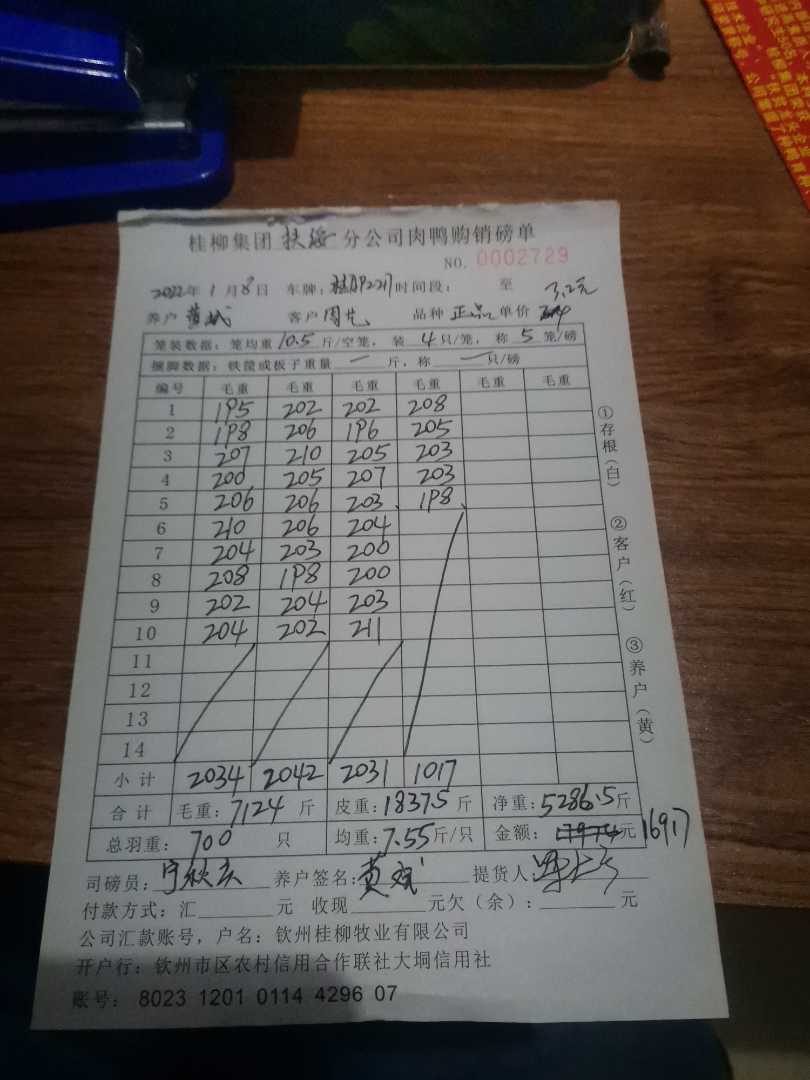 桂柳集团 扶绥 分公司肉鸭购销磅单
NO. 0002729
2022年 1 月 8 日 车牌： 时间段： 至 3.2元
养户 黄斌 客户 品种 正品 单价
笼装数据：笼均重 10.5 斤/空笼，装 4 只/笼，称 5 笼/磅
捆脚数据：铁筐或板子重量 一 斤，称 一 只/磅
编号 毛重 毛重 毛重 毛重 毛重 毛重
1 198 202 202 208
2 198 206 196 205
3 207 210 205 203
4 200 205 207 203
5 206 206 203 198
6 210 206 204
7 204 203 200
8 208 198 200
9 202 204 203
10 204 202 211
11
12
13
14
小计 2034 2042 2031 1017
合计 毛重：7124 斤 皮重：1837.5 斤 净重：5286.5斤
总羽重：700 只 均重：7.55斤/只 金额：17974元 16917
司磅员： 养户签名：黄斌 提货人：
付款方式：汇 元 收现 元欠（余）： 元
公司汇款账号，户名：钦州桂柳牧业有限公司
开户行：钦州市区农村信用合作联社大垌信用社
账号： 8023 1201 0114 4296 07
①存根（白）
②客户（红）
③养户（黄）